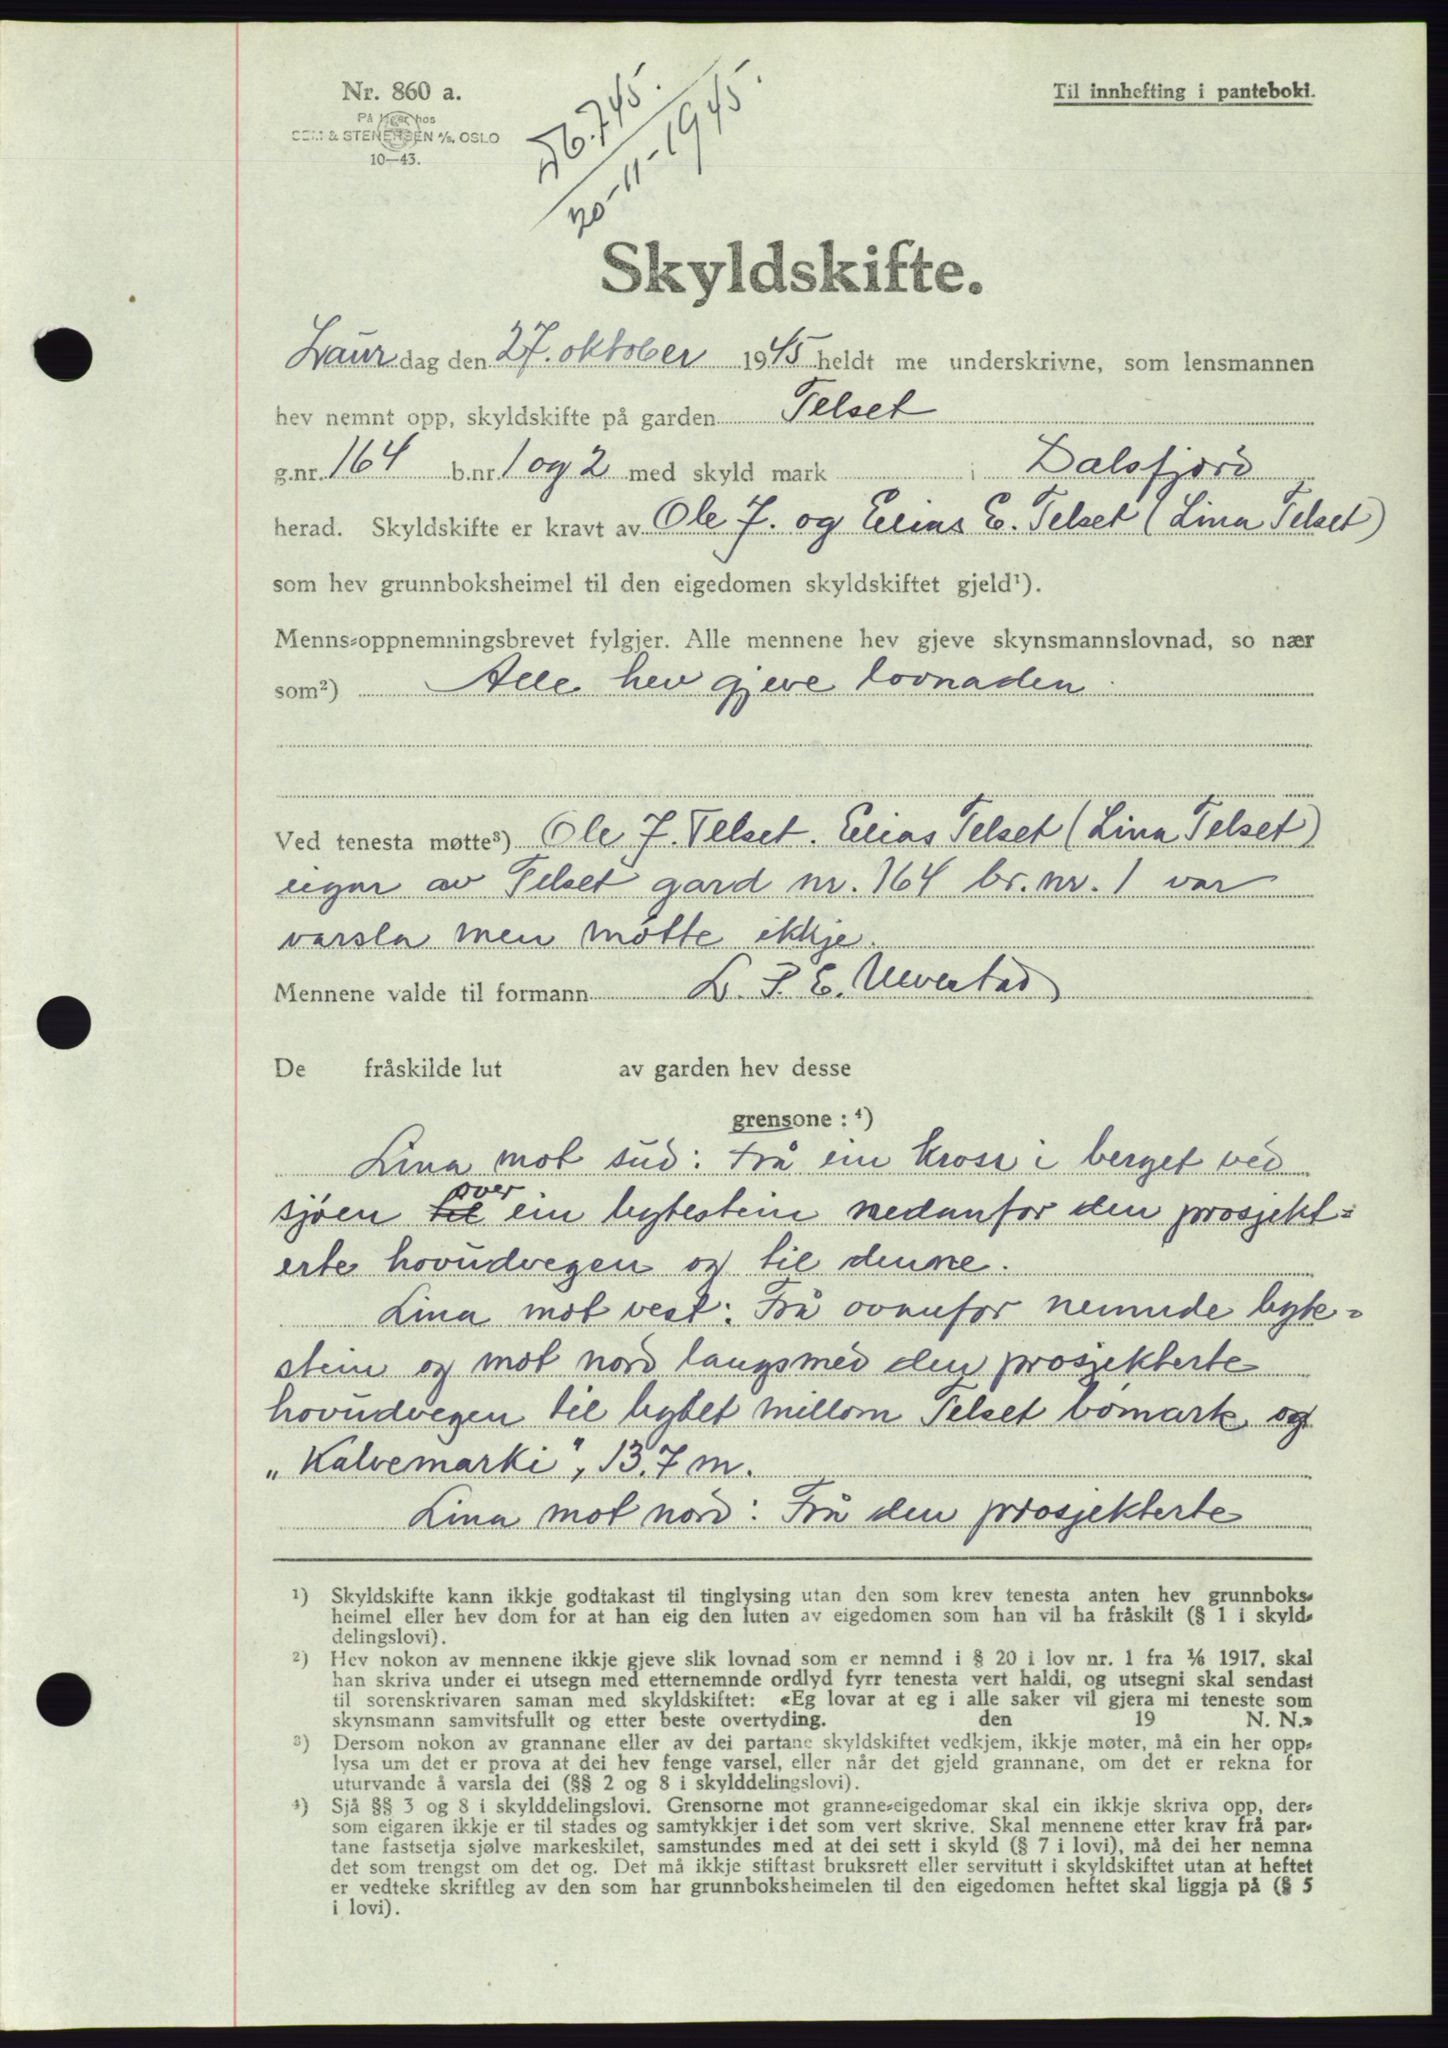 Nr. 860 a.
På lager hos
SEM & STENERSEN A/S, OSLO
10—43.
745.
20-11-1945.
Til innhefting i panteboki.
Skyldskifte.
Laurdag den 27. oktober 1945 heldt me underskrivne, som lensmannen
hev nemnt opp, skyldskifte på garden Telset
g.nr. 164 b.nr. 1 og 2 med skyld mark i Dalsfjord
herad. Skyldskifte er kravt av Ole J. og Elias E. Telset (Lina Telset)
som hev grunnboksheimel til den eigedomen skyldskiftet gjeld¹).
Menns-oppnemningsbrevet fylgjer. Alle mennene hev gjeve skynsmannslovnad, so nær
som²) Alle hev gjeve lovnaden.
Ved tenesta møtte³) Ole J. Telset. Elias Telset (Lina Telset)
eigar av Telset gard nr. 164 br. nr. 1 var
varsla men møtte ikkje.
Mennene valde til formann L. P. E. Ulvestad
De fråskilde lut av garden hev desse
grensone: ⁴)
Lina mot sud: frå ein kross i berget ved
sjøen til over ein bytestein nedanfor den prosjekt=
erte hovudvegen og til denne.
Lina mot vest: Frå ovanfor nemnde byte=
stein og mot nord langsmed den prosjekterte
hovudvegen til bytet millom Telset bømark og
„Kalvemarki", 13.7 m.
Lina mot nord: Frå den prosjekterte
¹) Skyldskifte kann ikkje godtakast til tinglysing utan den som krev tenesta anten hev grunnboks-
heimel eller hev dom for at han eig den luten av eigedomen som han vil ha fråskilt (§ 1 i skyld-
delingslovi).
²) Hev nokon av mennene ikkje gjeve slik lovnad som er nemnd i § 20 i lov nr. 1 fra 1/6 1917, skal
han skriva under ei utsegn med etternemnde ordlyd fyrr tenesta vert haldi, og utsegni skal sendast
til sorenskrivaren saman med skyldskiftet: «Eg lovar at eg i alle saker vil gjera mi teneste som
skynsmann samvitsfullt og etter beste overtyding. den 19 N. N.»
³) Dersom nokon av grannane eller av dei partane skyldskiftet vedkjem, ikkje møter, må ein her opp-
lysa um det er prova at dei hev fenge varsel, eller når det gjeld grannane, om det er rekna for
uturvande å varsla dei (§§ 2 og 8 i skylddelingslovi).
⁴) Sjå §§ 3 og 8 i skylddelingslovi. Grensorne mot granne-eigedomar skal ein ikkje skriva opp, der-
som eigaren ikkje er til stades og samtykkjer i det som vert skrive. Skal mennene etter krav frå par-
tane fastsetja sjølve markeskilet, samstundes med at dei sett i skyld (§ 7 i lovi), må dei her nemna
det som trengst om det og. Det må ikkje stiftast bruksrett eller servitutt i skyldskiftet utan at heftet
er vedteke skriftleg av den som har grunnboksheimelen til den eigedomen heftet skal liggja på (§ 5
i lovi).